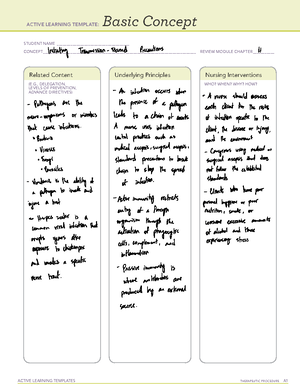 ACTIVE LEARNING TEMPLATE: Basic Concept
STUDENT NAME
CONCEPT Infection Transmission-Based Precautions REVIEW MODULE CHAPTER
Related Content
(E.G., DELEGATION,
LEVELS OF PREVENTION,
ADVANCE DIRECTIVES)
- Pathogens are the
micro-organisms or microbes
that cause infections.
• Bacteria
• Viruses
• Fungi
• Parasites
- Virulence is the ability of
a pathogen to invade and
injure a host
- Herpes zoster is a
common viral infection that
erupts years after
exposure to chickenpox
and invades a specific
nerve tract.
Underlying Principles
- An infection occurs when
the presence of a pathogen
leads to a chain of events.
A nurse uses infection
control practices such as
medical asepsis, surgical asepsis,
standard precautions to break
chain to stop the spread
of infection.
- Active immunity restricts
entry of a foreign
organism through the
activation of phagocytic
cells, complement, and
inflammation
- Passive immunity is
where antibodies are
produced by an external
source.
Nursing Interventions
WHO? WHEN? WHY? HOW?
- A nurse should assess
each client for the risks
of infection specific to the
client, the disease or injury,
and the environment
- Caregivers using medical or
surgical asepsis that does
not follow the established
standards
- Clients who have poor
personal hygiene or poor
nutrition, smoke, or
consume excessive amounts
of alcohol and those
experiencing stress
ACTIVE LEARNING TEMPLATES
THERAPEUTIC PROCEDURE